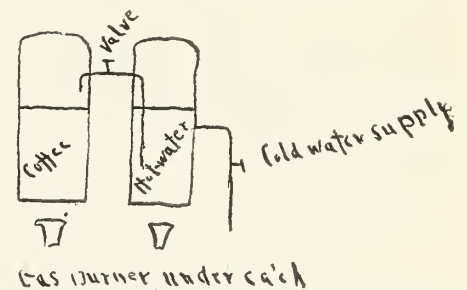 Valve
Coffee
Hot water
Cold water supply
Gas burner under each